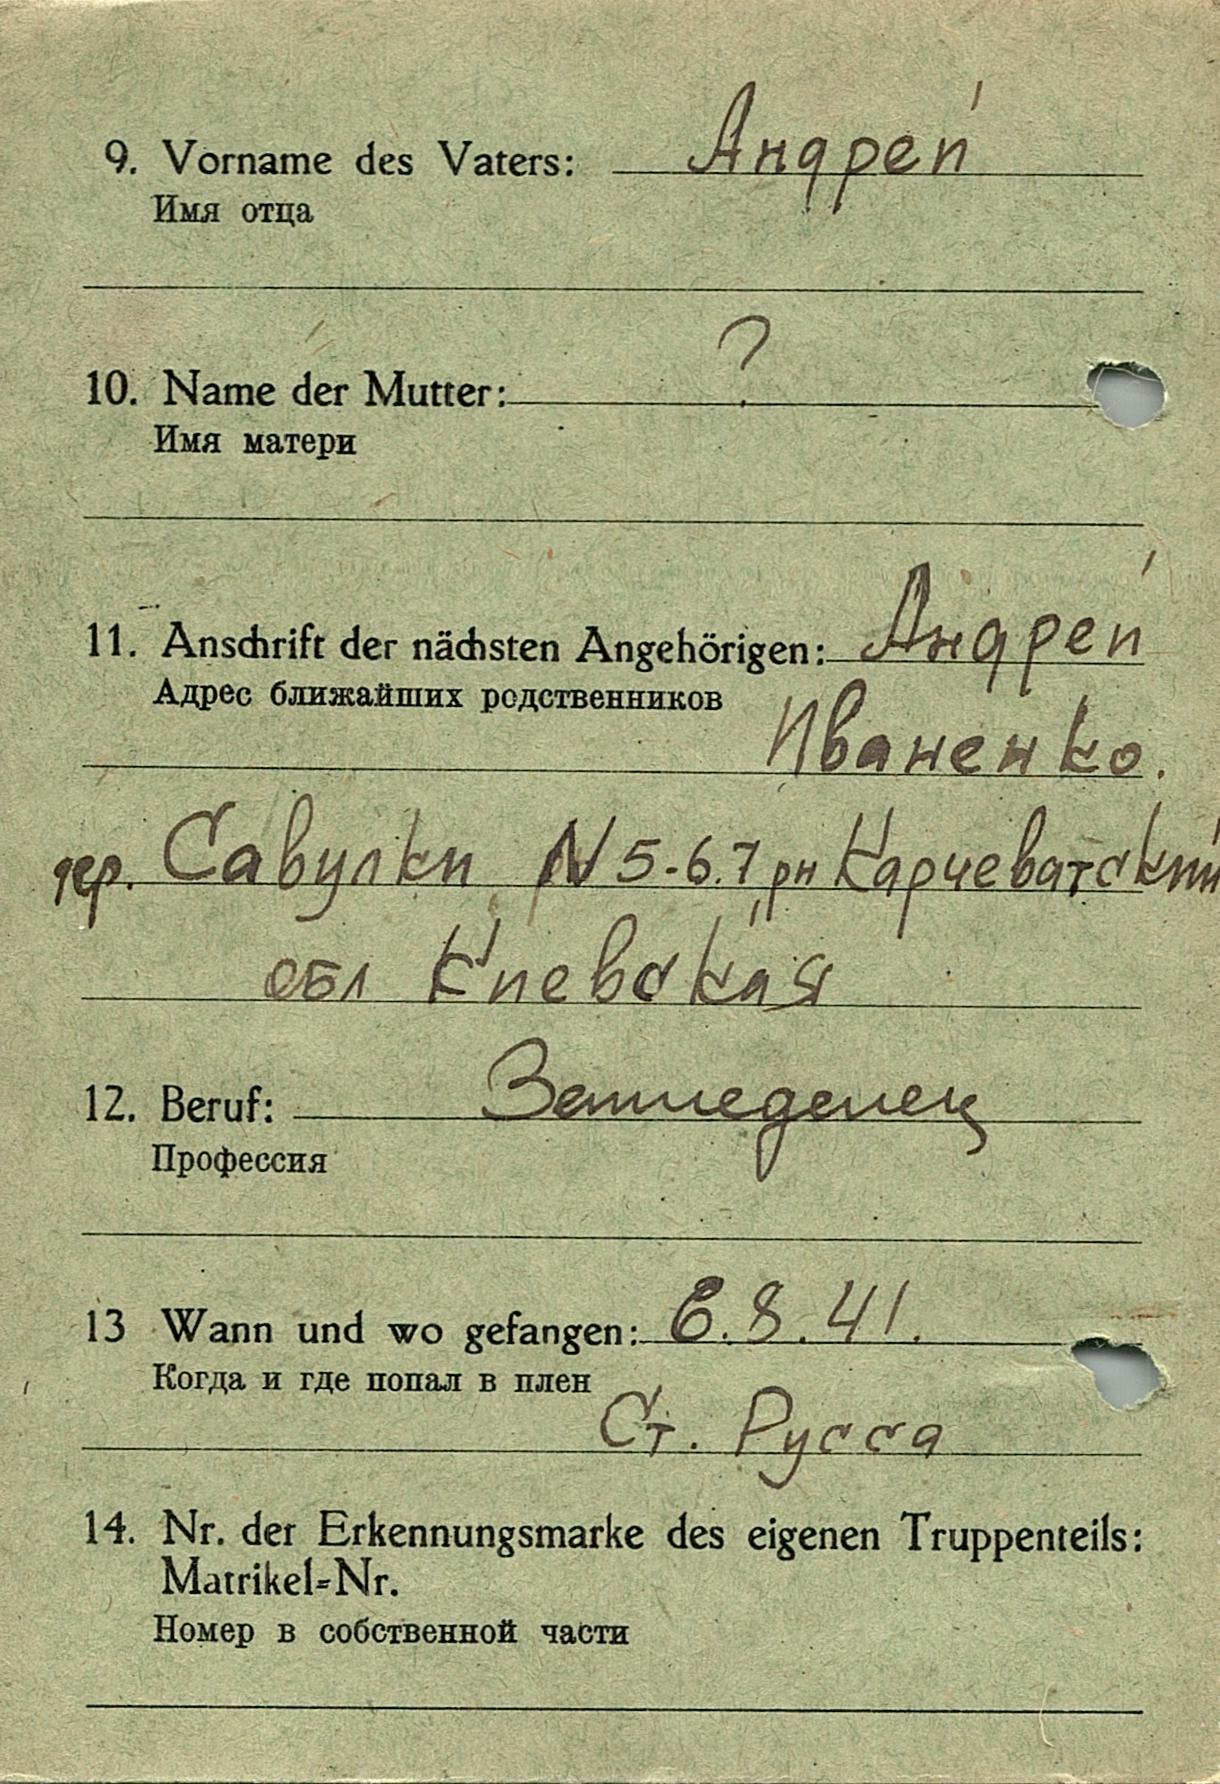 9. Vorname des Vaters: Андрей
Имя отца
10. Name der Mutter: ?
Имя матери
11. Anschrift der nächsten Angehörigen: Андрей
Адрес ближайших родственников
Иваненко.
дер. Савулки N 5-6.7 рн Карчеватский
обл Киевская
12. Beruf: Земледелец
Профессия
13 Wann und wo gefangen: 6.8.41.
Когда и где попал в плен
Ст. Русса
14. Nr. der Erkennungsmarke des eigenen Truppenteils:
Matrikel=Nr.
Номер в собственной части